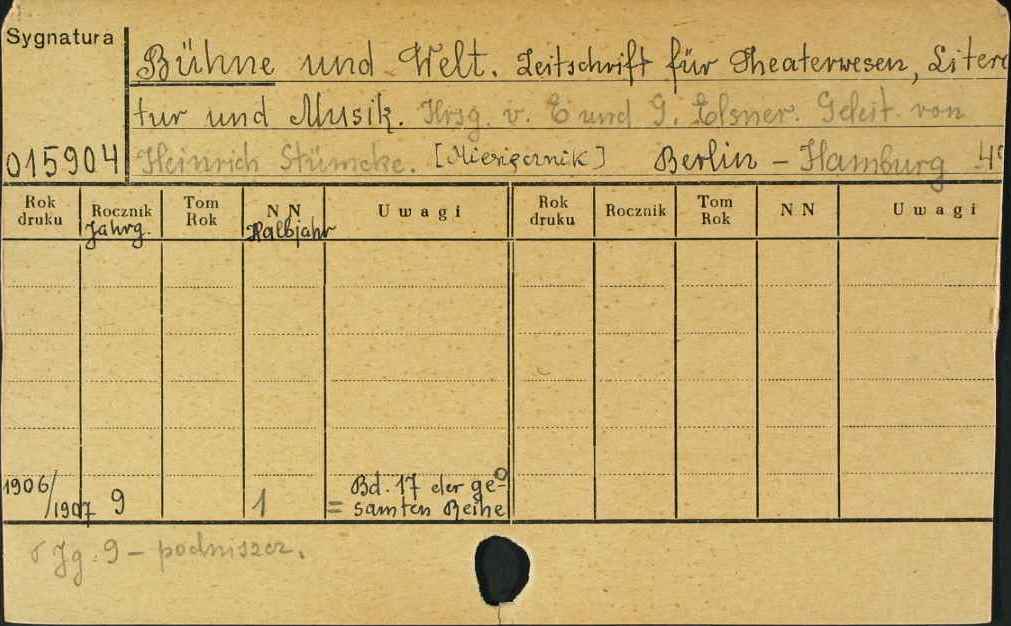 Sygnatura
Bühne und Welt. Zeitschrift für Theaterwesen, Litera
tur und Musik. Hrsg. v. E und G. Elsner. Geleit. von
015904 Heinrich Stümcke. [Miesięcznik] Berlin - Hamburg 4°
Rok druku Rocznik Tom Rok NN Uwagi Rok druku Rocznik Tom Rok NN Uwagi
Jahrg. Halbjahr
1906/ Bd. 17 der ge-
/1907 9 1 = samten Reihe
Jg. 9 - podniszcz.